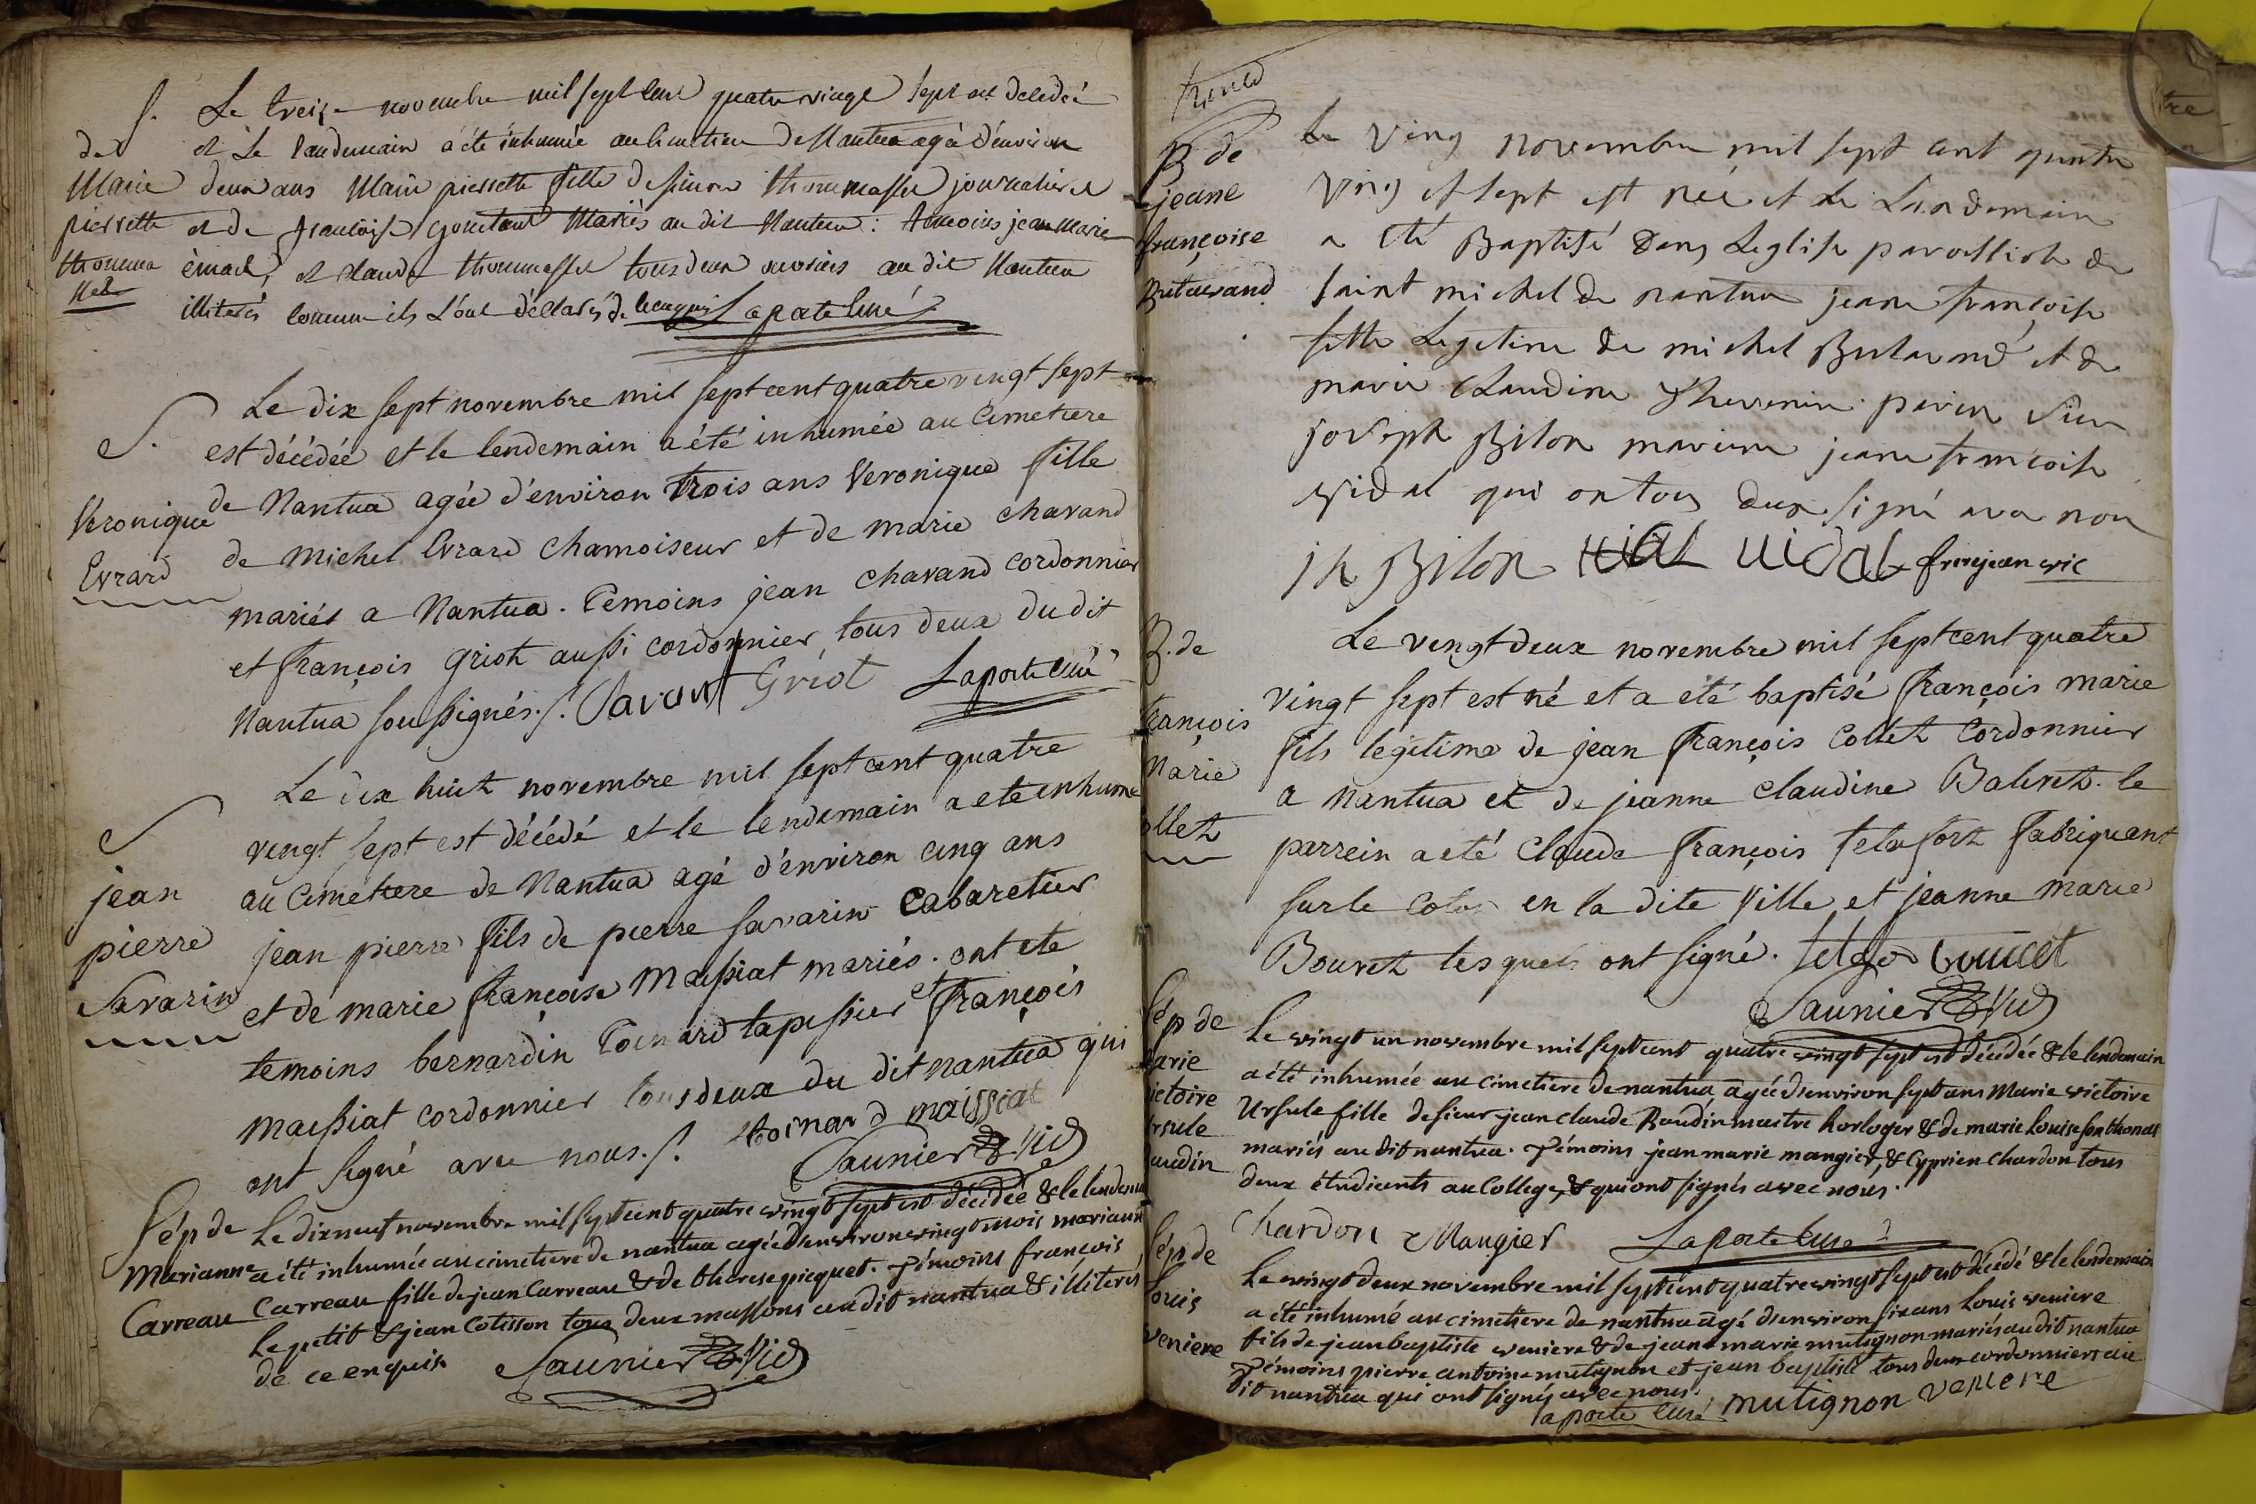 S.
de
Marie
pierrette
thomma
Le treize novembre mil sept cent quatre vingt sept est décédée
et Le Landemain a été inhumée au Cimetiere de Nantua agée d'environ
deux ans Marie pierrette fille de thommasset journalier
et de françoise mariés au dit Nantua : témoins jean marie
et claude thommasset tous deux au dit Nantua
illiterés comme ils L'ont déclarés de ce enquis Laporte Curé
S.
Veronique
Evrard
Le dix sept novembre mil sept cent quatre vingt sept
est décédée et le lendemain a été inhumée au Cimetiere
de Nantua agée d'environ trois ans Veronique fille
de michel Evrard chamoiseur et de marie chavand
mariés a Nantua. Temoins jean chavand cordonnier
et françois griot aussi cordonnier tous deux du dit
Nantua soussignés./. Savant Griot Laporte Curé
S
jean
pierre
Savarin
Le dix huit novembre mil sept cent quatre
vingt sept est décédé et le lendemain a ete inhumé
au Cimetiere de Nantua agé d'environ cinq ans
jean pierre fils de pierre savarin Cabaretier
et de marie françoise Maissiat mariés. ont ete
temoins bernardin Toinard tapissier et françois
maissiat cordonnier tous deux du dit nantua qui
ont signé avec nous./. toinard maissiat
Saunier Vic
Sép de
Marianne
Carreau
Le dixneuf novembre mil sept cent quatre vingt sept est décédée & le lendemain
a été inhumée au cimetiere de nantua agée d'environ vingt mois mariann
Carreau fille de jean Carreau & de therese picquet. Témoins françois
Le petit & jean Cotisson tous deux massons au dit nantua & illiterés
de ce enquis Saunier Vic
B de
jeane
françoise
Butavand
Le ving novembre mil sept cent quatre
ving et sept est née et Le Landemain
a été Baptisé Dans Leglise paroissiale de
saint michel de nantua jeane françoise
fille Legetime de michel et de
marie Claudine thevenin parin sieur
joseph Bilon marene jeane francoise
vidal qui on tous deux signé ave nou
jh Bilon vidal frerejean vic
B. de
françois
Marie
ollet
Le vengt deux novembre mil sept cent quatre
vingt sept est né et a eté baptisé françois marie
fils legitime de jean françois Collet Cordonnier
a nantua et de jeanne claudine Baluet. le
parrein a eté Claude françois fabriquant
sur le coton en la dite ville et jeanne marie
Bouvet lesquels ont signé. bouvet
Saunier Vic
Sép de
arie
ictoire
rsule
audin
Le vingt un novembre mil sept cent quatre vingt sept est décédée & le lendemain
a été inhumée au cimetiere de nantua, agée d'environ sept ans Marie victoire
Ursule fille de sieur jean claude Baudin maitre horloger & de marie Louise fonthonas
mariés au dit nantua. Témoins jean marie mangier, & Cyprien Chardon tous
deux étudients au College, & qui ont signés avec nous.
Chardon Mangier Laporte Curé
Sép de
Louis
veniere
Le vingt deux novembre mil sept cent quatre vingt sept est décédé & le lendemain
a été inhumé au cimetiere de nantua agé d'environ six ans Louis veniere
fils de jean baptiste veniere & de jeanne marie mutignon mariés au dit nantua
Témoins pierre antoine mutignon et jean baptiste tous deux cordonniers au
dit nantua qui ont signés avec nous.
Laporte Curé mutignon veniere